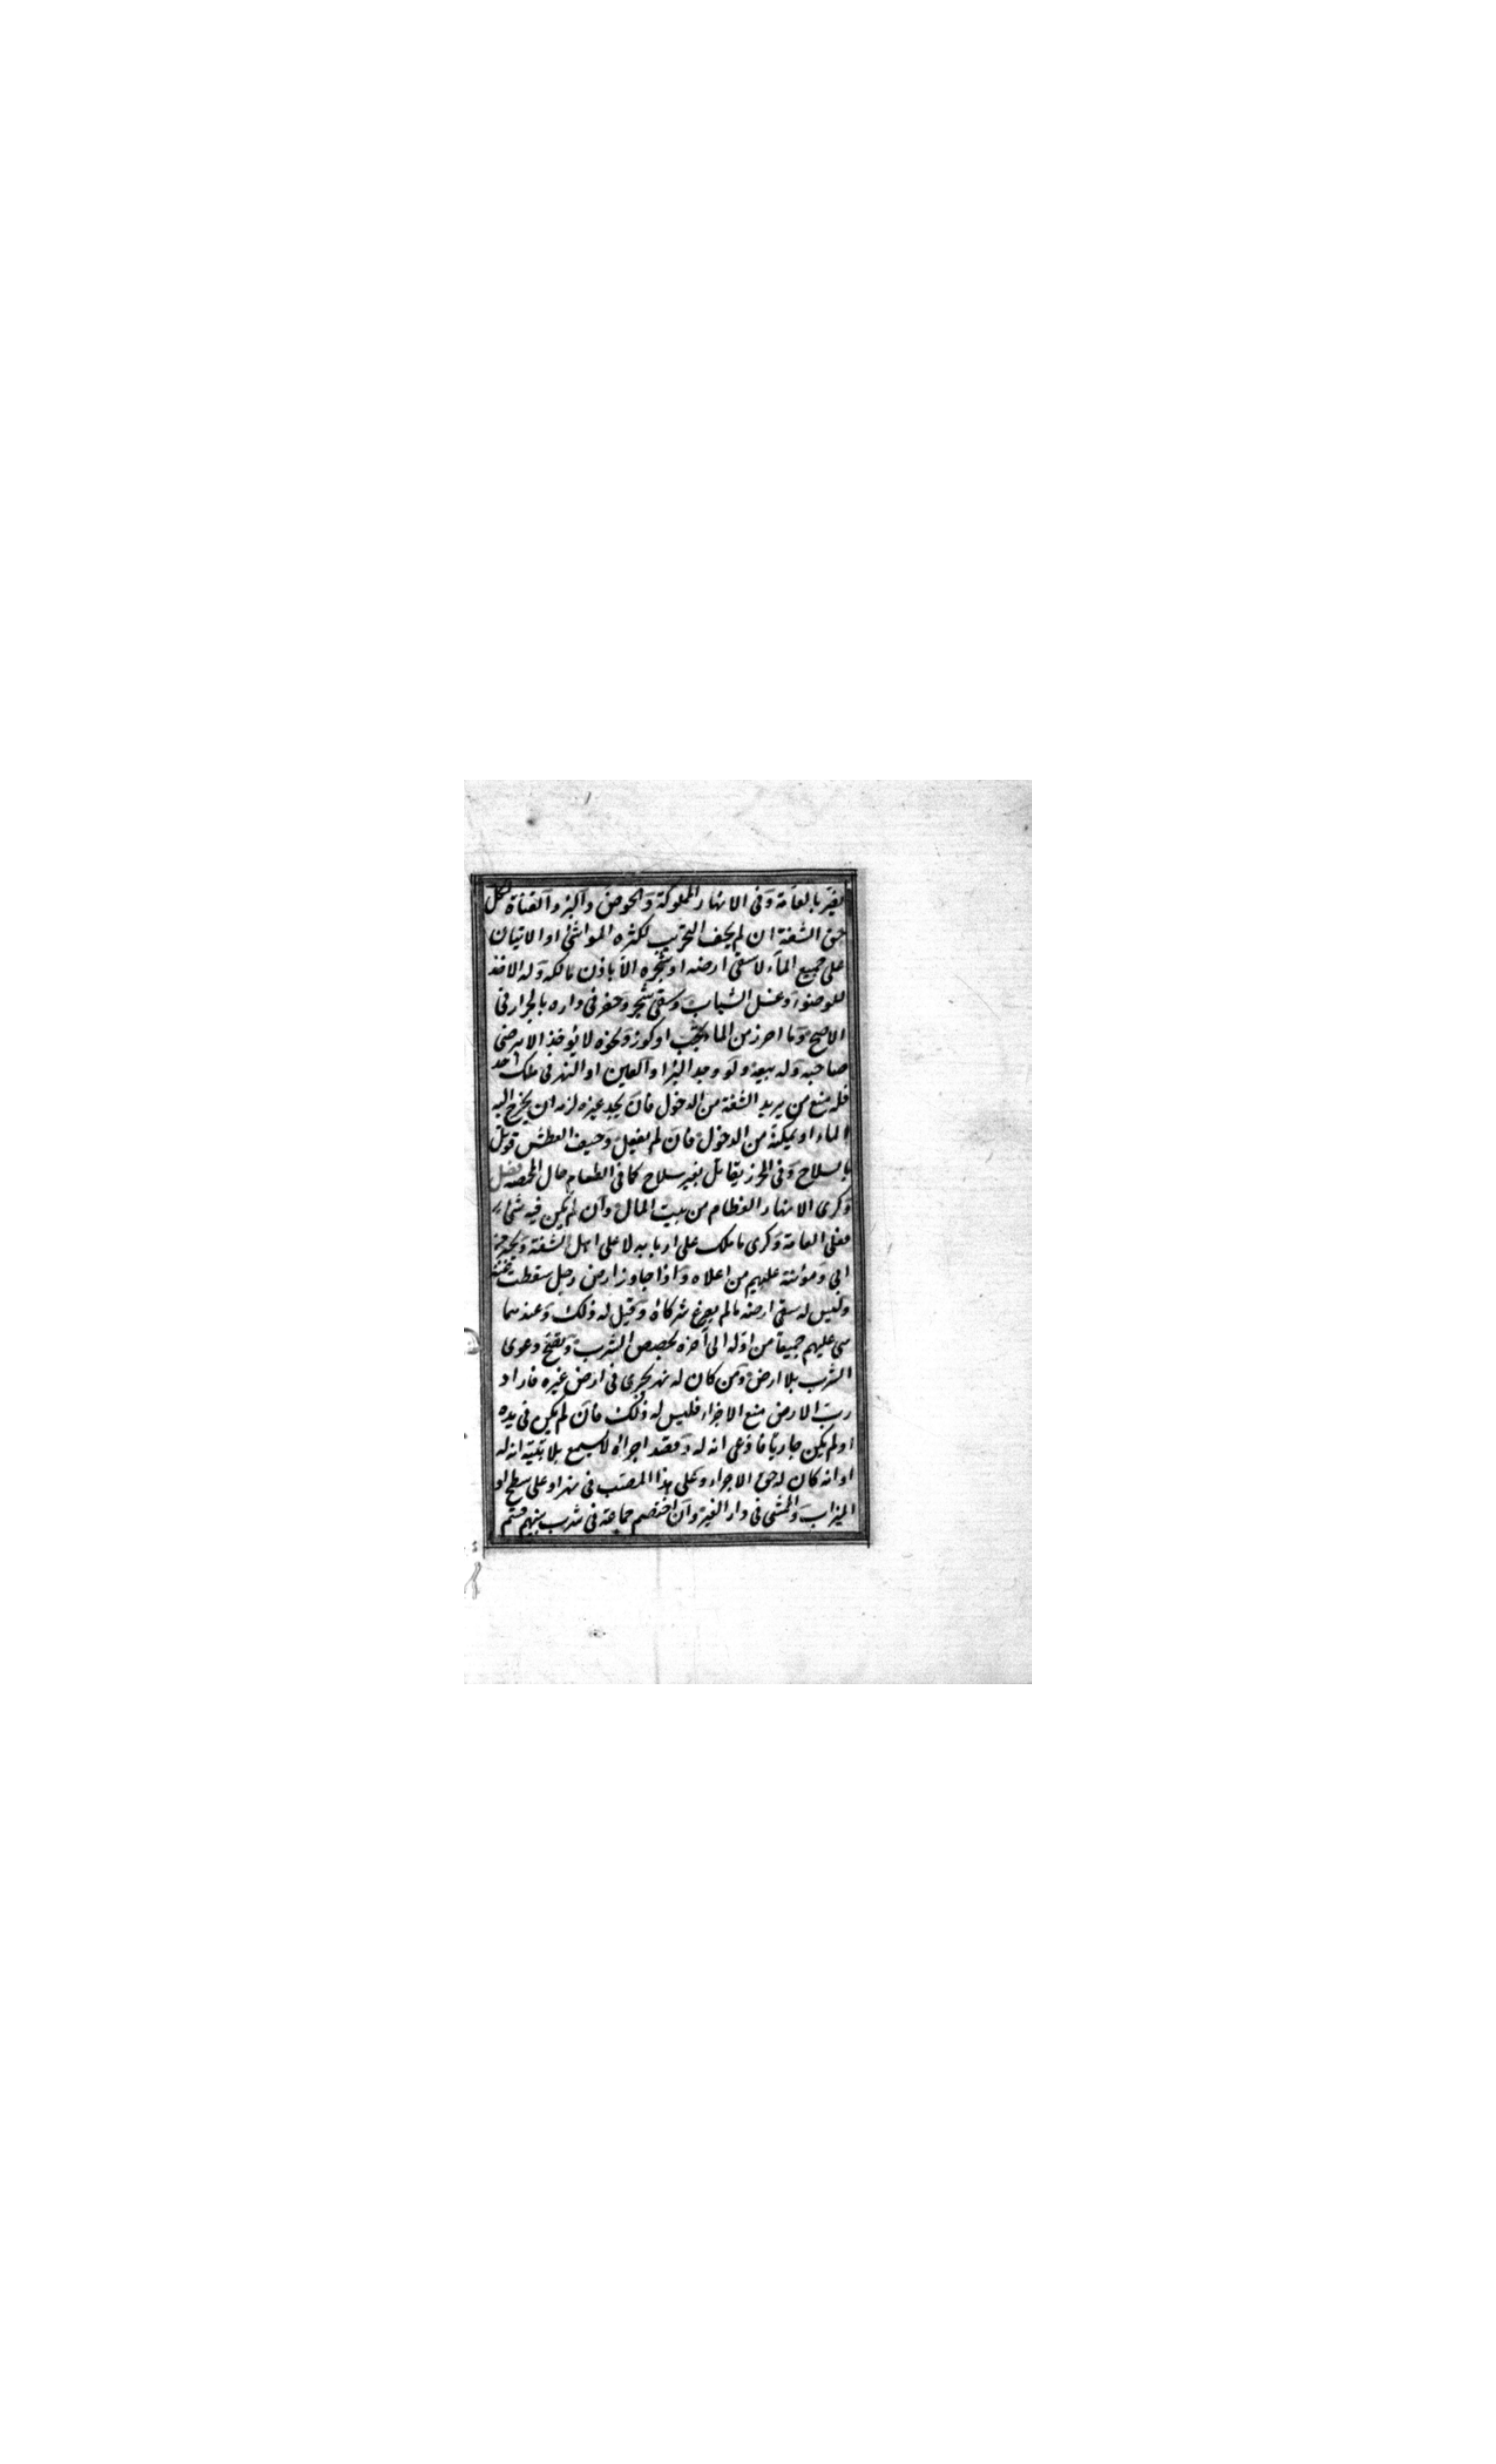 يضر بالعامة وفى الانهار المملوكة والحوض والبئر والقناة لكل
حق الشفة ان لم يخف التخريب لكثرة المواشى او الاتيان
على جميع الماء لا سقى ارضه او شجره الا باذن مالكه وله الاخذ
للوضوء وغسل الثياب وسقى شجر وخضر فى داره بالجرار فى
الاصح وما احرز من الماء بحب او كوز ونحوه لا يؤخذ الا برضى
صاحبه وله بيعه ولو وجد البئر او العين او النهر فى ملك احد
فله منع من يريد الشفة من الدخول فان لم يجد غيره لزمه ان يخرج اليه
الماء او يمكنه من الدخول فان لم يفعل وخيف العطش قوتل
بالسلاح وفى المحرز يقاتل بغير سلاح كما فى الطعام حال المخمصة فصل
وكرى الانهار العظام من بيت المال وان لم يكن فيه شئ
فعلى العامة وكرى ما ملك على اربابه لا على اهل الشفة ويجبر من
ابى ومؤنته عليهم من اعلاه واذا جاوز ارض رجل سقطت عنه
وليس له سقى ارضه ما لم يفرغ شركاؤه وقيل له ذلك وعندهما
هى عليهم جميعا من اوله الى آخره بحصص الشرب وتصح دعوى
الشرب بلا ارض ومن كان له نهر يجرى فى ارض غيره فاراد
رب الارض منع الاجراء فليس له ذلك فان لم يكن فى يده
او لم يكن جاريا فادعى انه له وقصد اجراؤه لا يسمع بلا بينة انه له
او انه كان له حق الاجراء وعلى هذا المصب فى نهر او على سطح او
الميزاب والممشى فى دار الغير وان اختصم جماعة فى شرب بينهم قسم